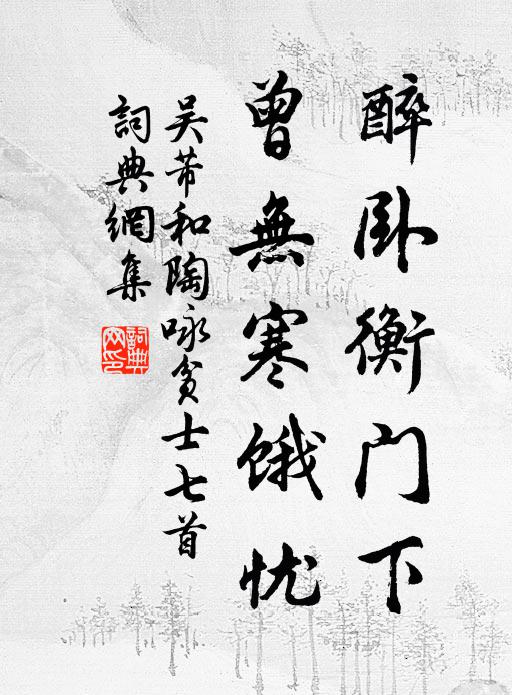 醉卧衡门下
曾無寒饿忧
吴芾和陶咏贫士七首
詞典網集
詞典网印